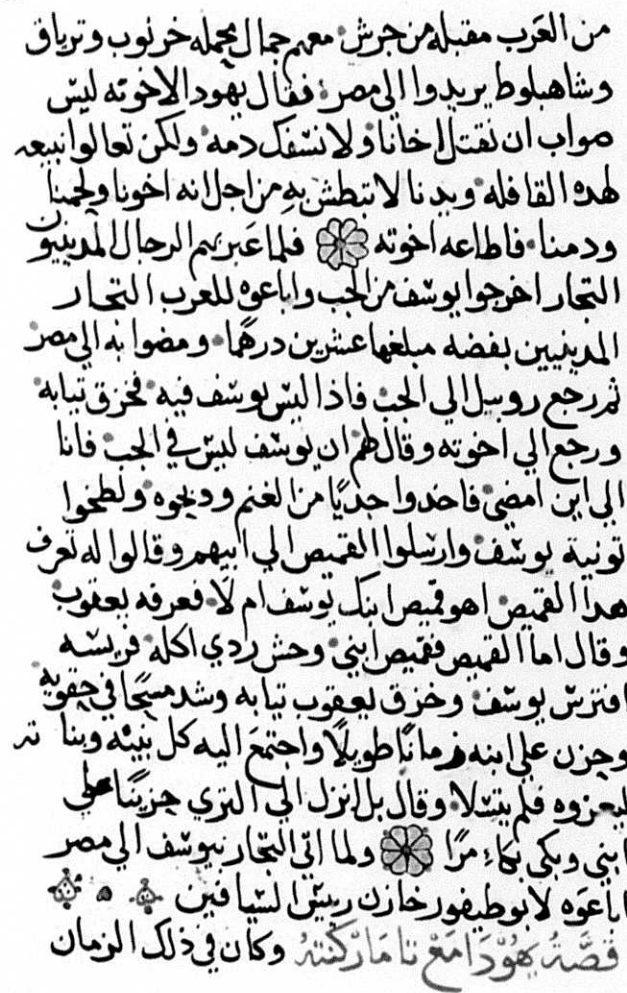 من العَرب مقبله من جرش معهم جمال مجمله خرنوب وترياق
وشاهبلوط يريدوا الي مصر فقال يهودا لاخوته ليس
صواب ان نقتل اخانا ولا نسفك دمه ولكن تعالوا نبيعه
لهده القافله ويدنا لا تبطش بهِ من اجل انه اخونا ولحمنا
ودمنا فاطاعه اخوته فلما عَبر بهم الرجال المدينيون
التجار اخرجوا يوسف من الجب واباعوه للعرب التجار
المدينيين بفضه مبلغها عشرين درهمًا ومضوا به الي مصر
ثم رجع روبيل الي الجب فاذا ليس يوسف فيه فخزق تيابه
ورجع الي اخوته وقال لهم ان يوسف ليس في الجب فانا
الي اين امضي فاخدوا جديًا من الغنم ودبحوه ولطخوا
تونية يوسف وارسلوا القميص الي ابيهم وقالوا له تعرف
هدا القميص اهو قميص ابنك يوسف ام لا فعرفه يعقوب
وقال اما القميص فقميص ابني وحش ردي اكله فريسه
افترس يوسف وخزق يعقوب تيابه وشد مسحًا في حقويه
وحزن علي ابنه زمانًا طويلًا واجتمع اليه كل بنيه وبناته
ليعزوه فلم يتسلا وقال بل انزل الي التري حزينًا علي
ابني وبكي بكاءِ مرًا ولما اتي التجار بيوسف الي مصر
اباعوَه لابوطيفور خازن ريس السيافين
قصَّةُ يَهُوْدَا مَعْ تامَارْ كَنتهُ وكان في ذلك الزمان